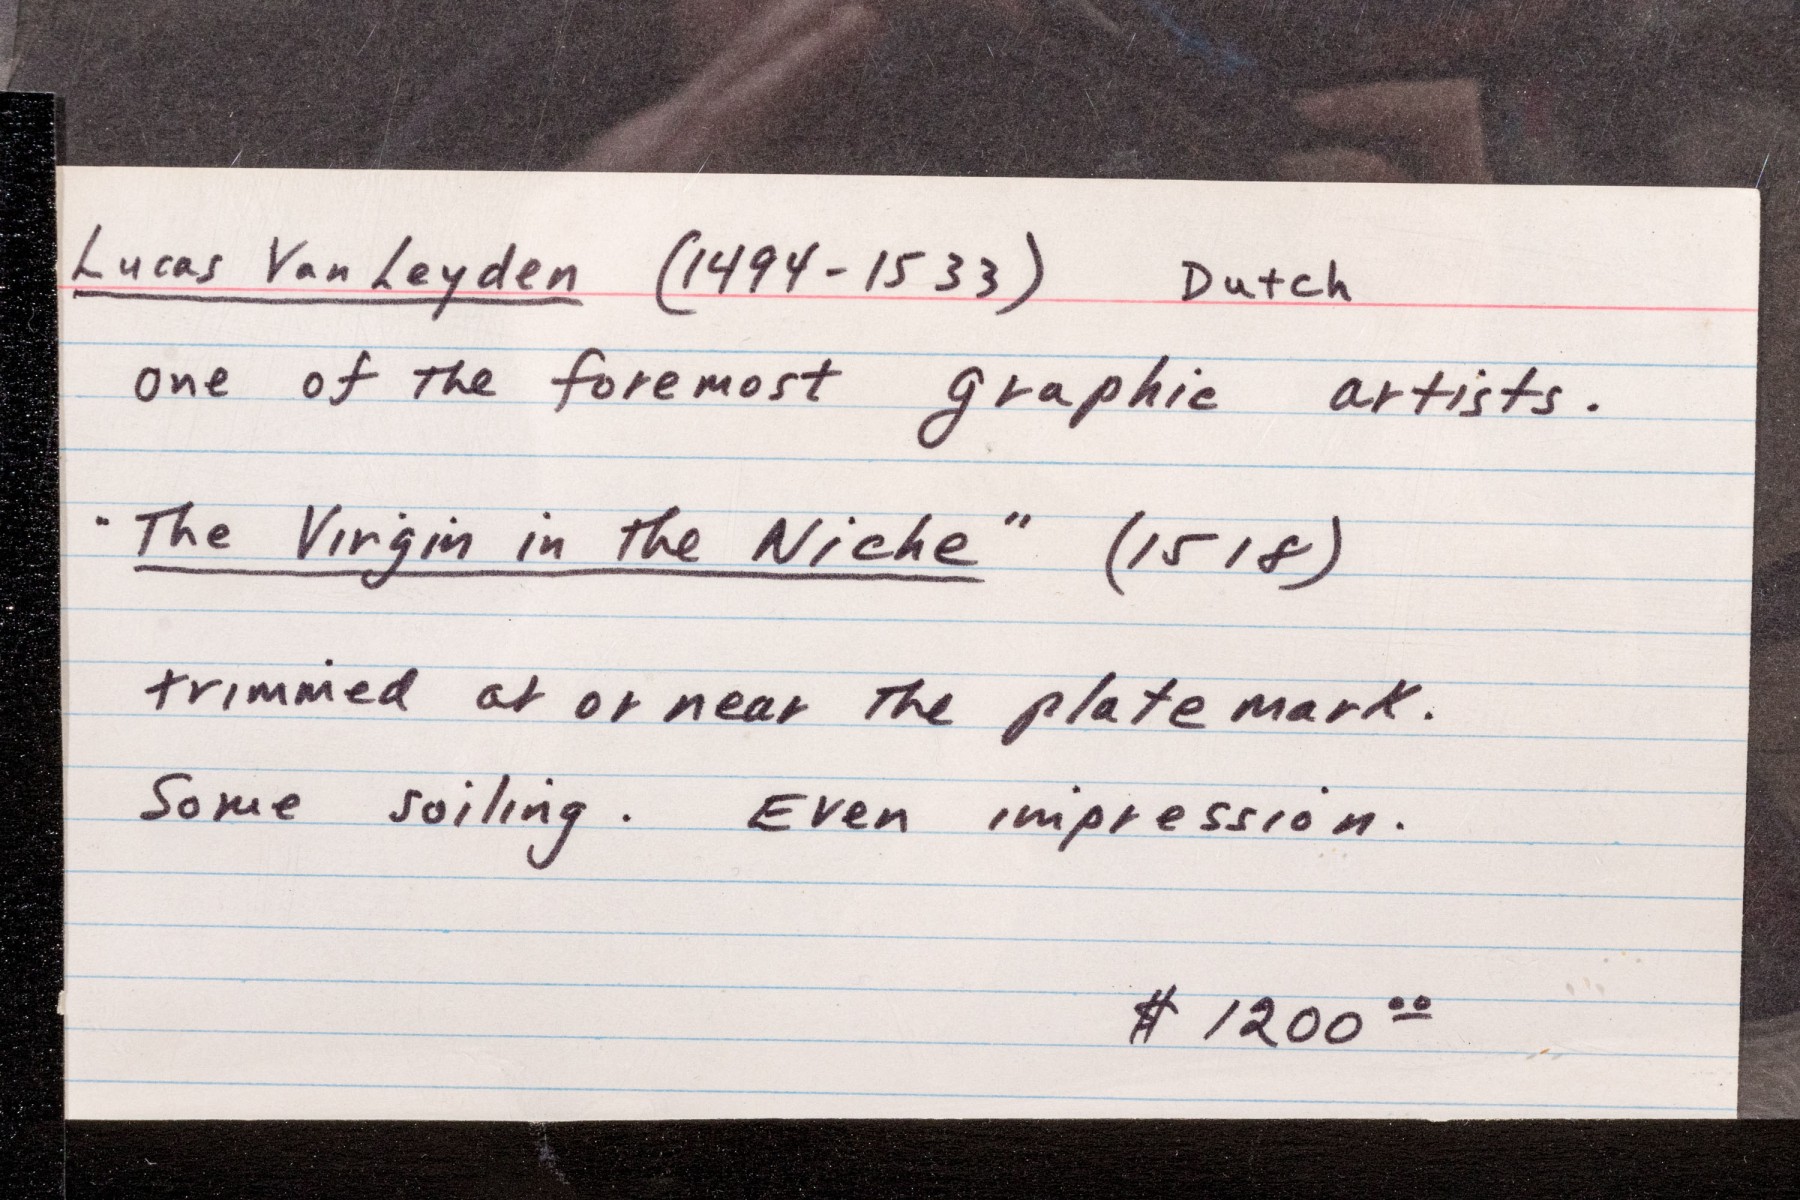 Lucas Van Leyden (1494-1533) Dutch
one of the foremost graphic artists.
"The Virgin in the Niche" (1518)
trimmed at or near the plate mark.
Some soiling. Even impression.
$ 1200.00